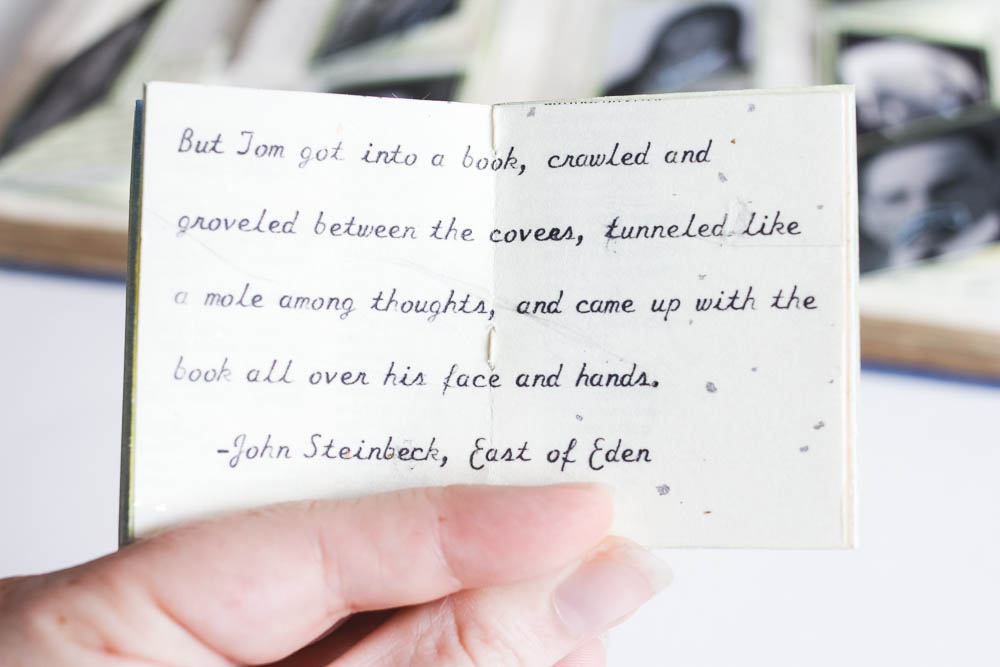 But Tom got into a book, crawled and
groveled between the covers, tunneled like
a mole among thoughts, and came up with the
book all over his face and hands.
-John Steinbeck, East of Eden